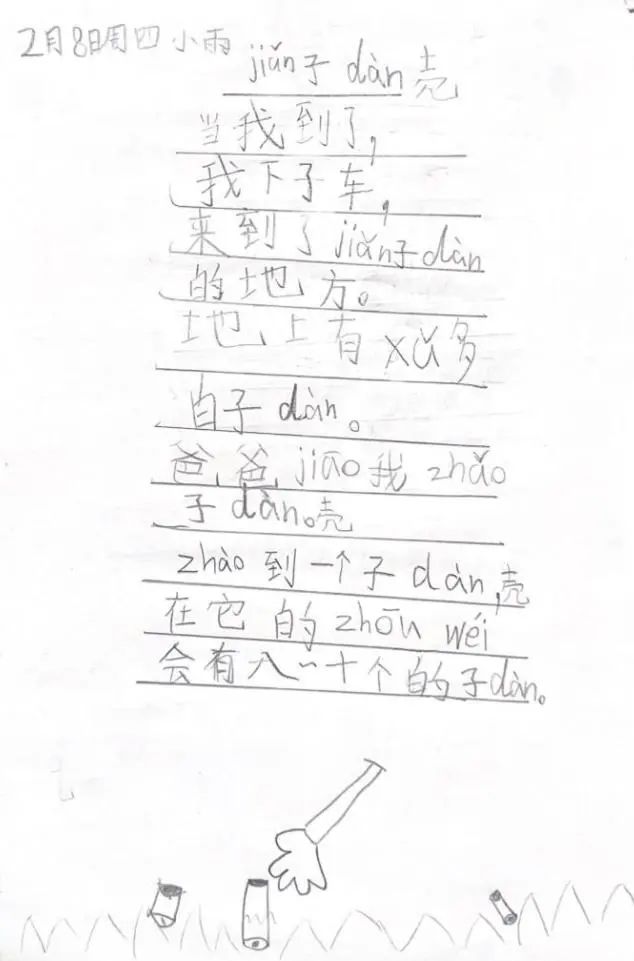 2月8日周四小雨
jiǎn子dàn壳
当我到了,
我下了车,
来到了jiǎn子dàn
的地方。
地上有xǔ多
白子dàn。
爸爸jiāo我zhǎo
子dàn。壳
zhào到一个子dàn,壳
在它的zhōu wéi
会有八~十个的子dàn。